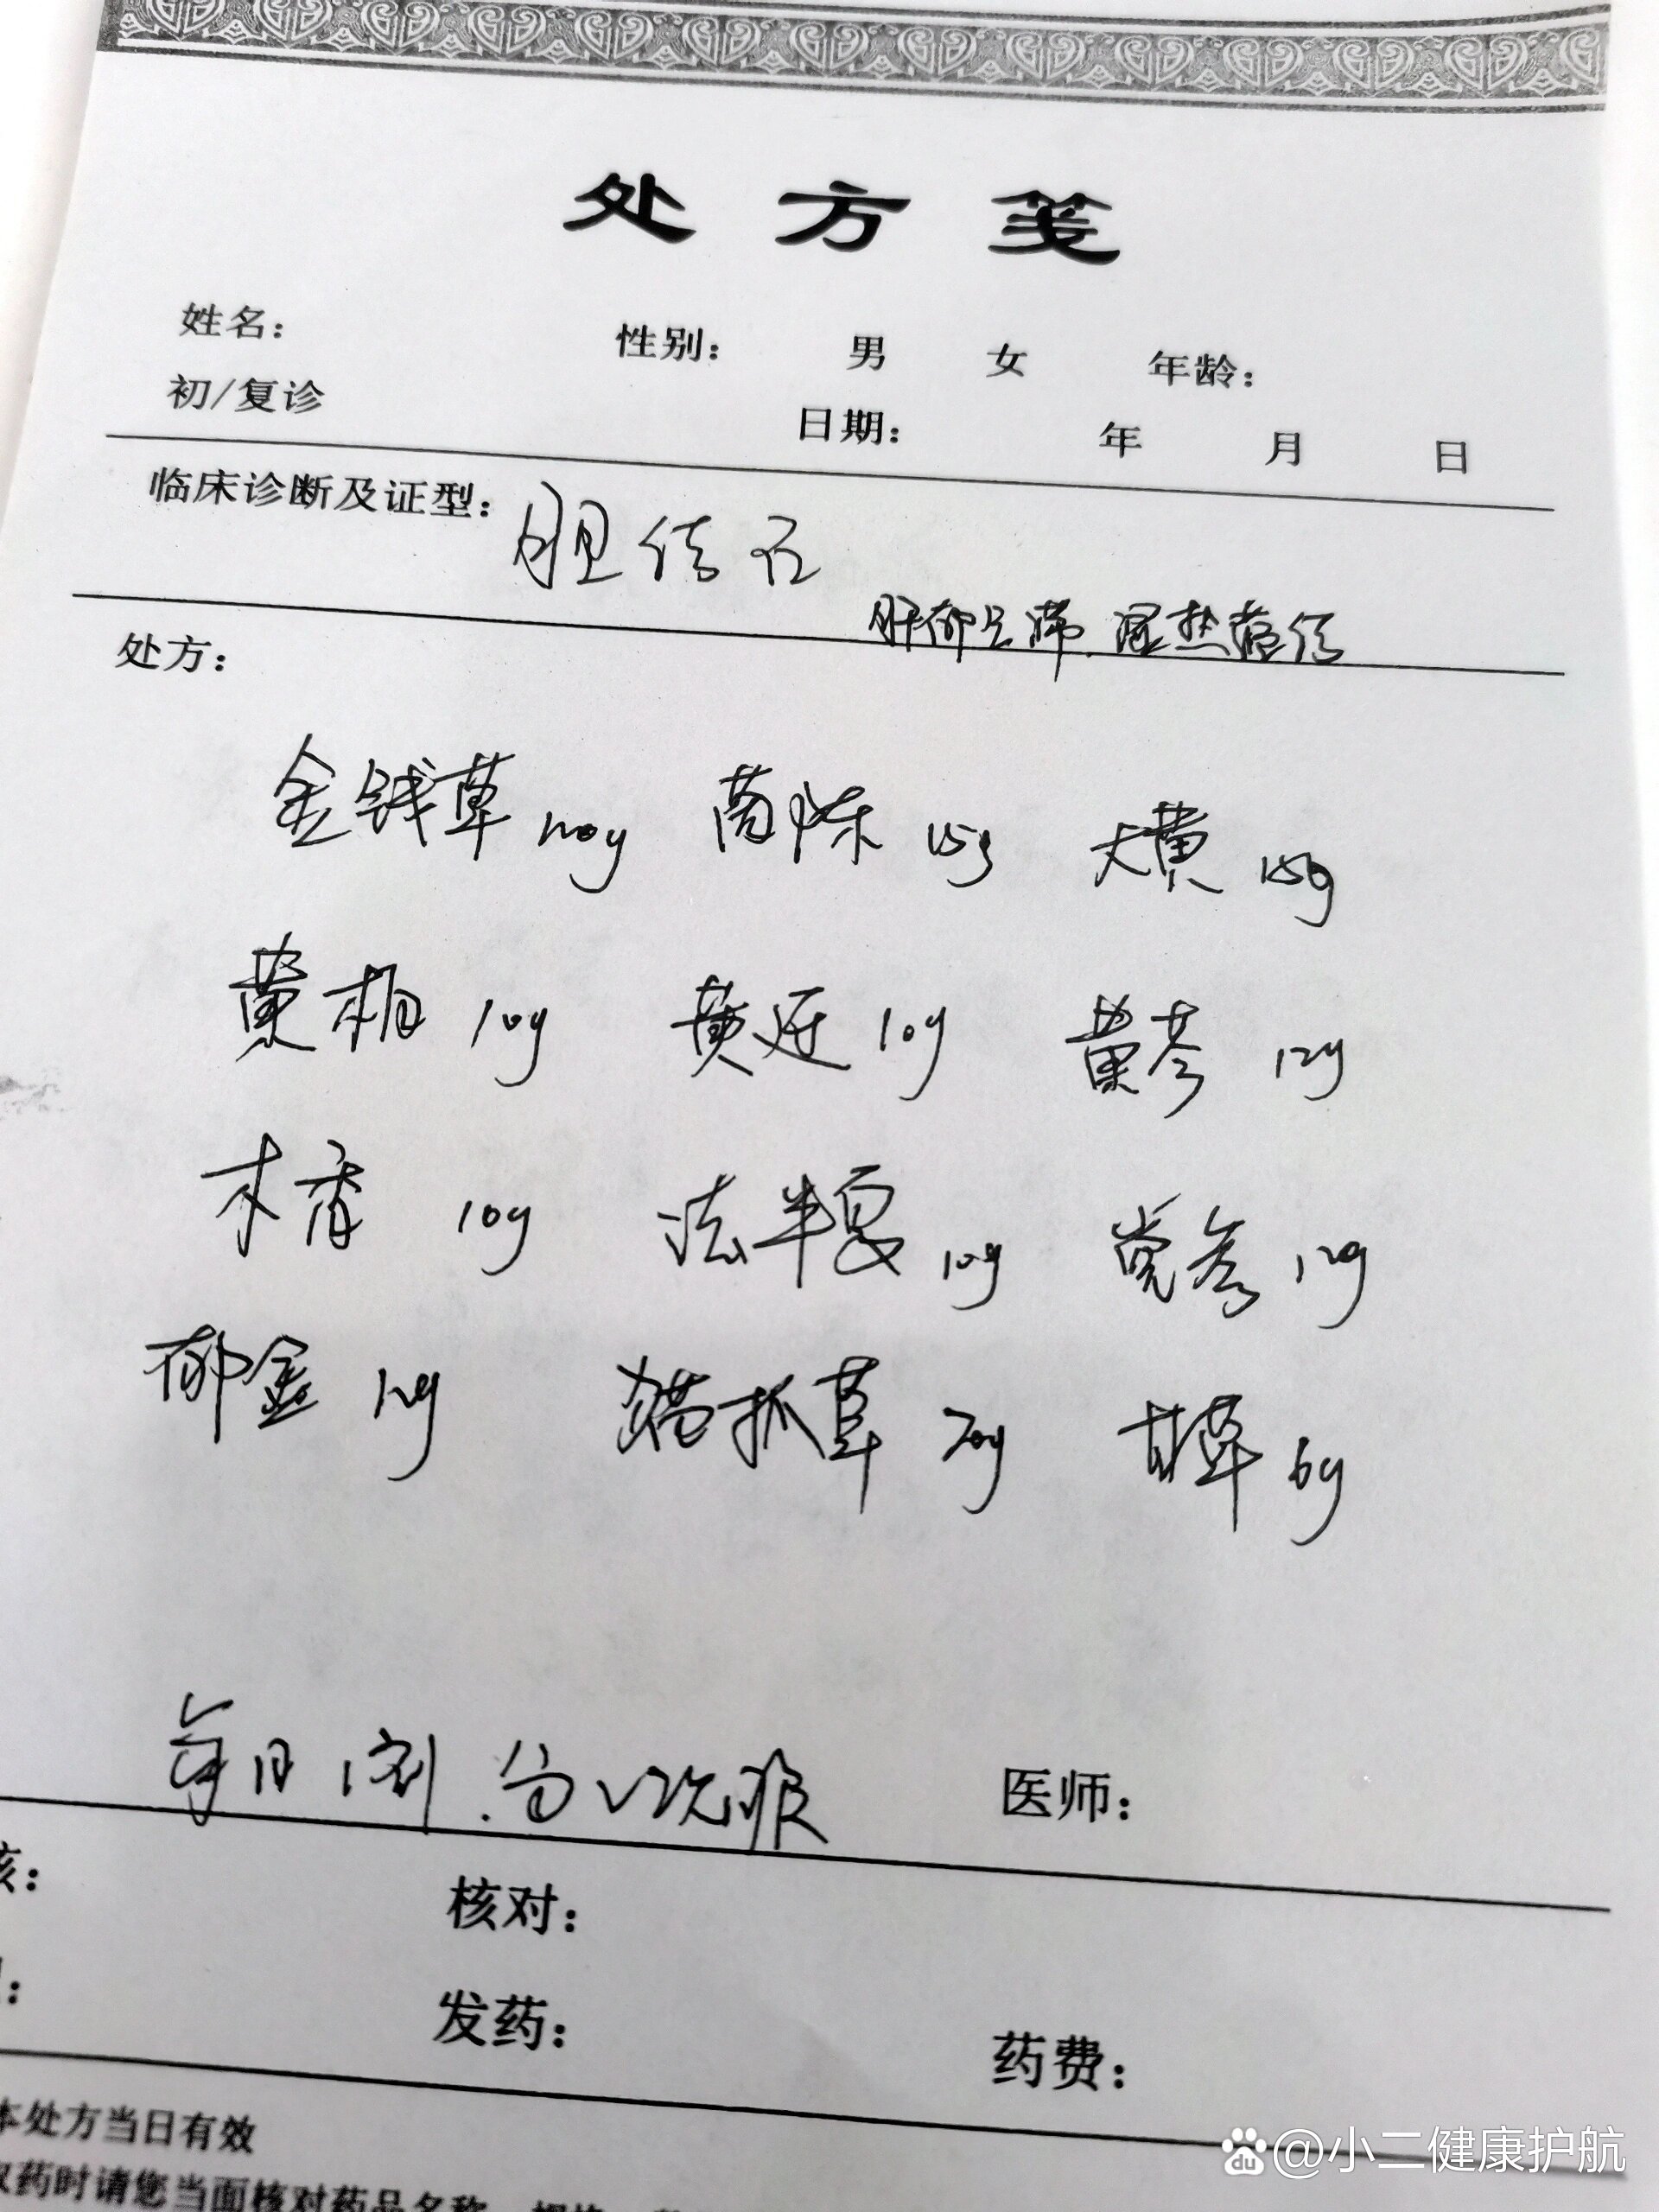 处方笺
姓名： 性别： 男 女 年龄：
初/复诊 日期： 年 月 日
临床诊断及证型：胆结石
肝郁气滞.湿热蕴结
处方：
金钱草 100g 茵陈 15g 大黄 15g
黄柏 10g 黄连 10g 黄芩 12g
木香 10g 法半夏 10g 党参 12g
郁金 12g 猫抓草 20g 甘草 6g
每日1剂.分2次服 医师：
核： 核对：
发药： 药费：
本处方当日有效
取药时请您当面核对药品名称、规格、
@小二健康护航